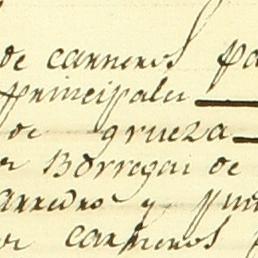 de carneros pa
principales
de grueza
or Borregas de
arredro y
or carneros